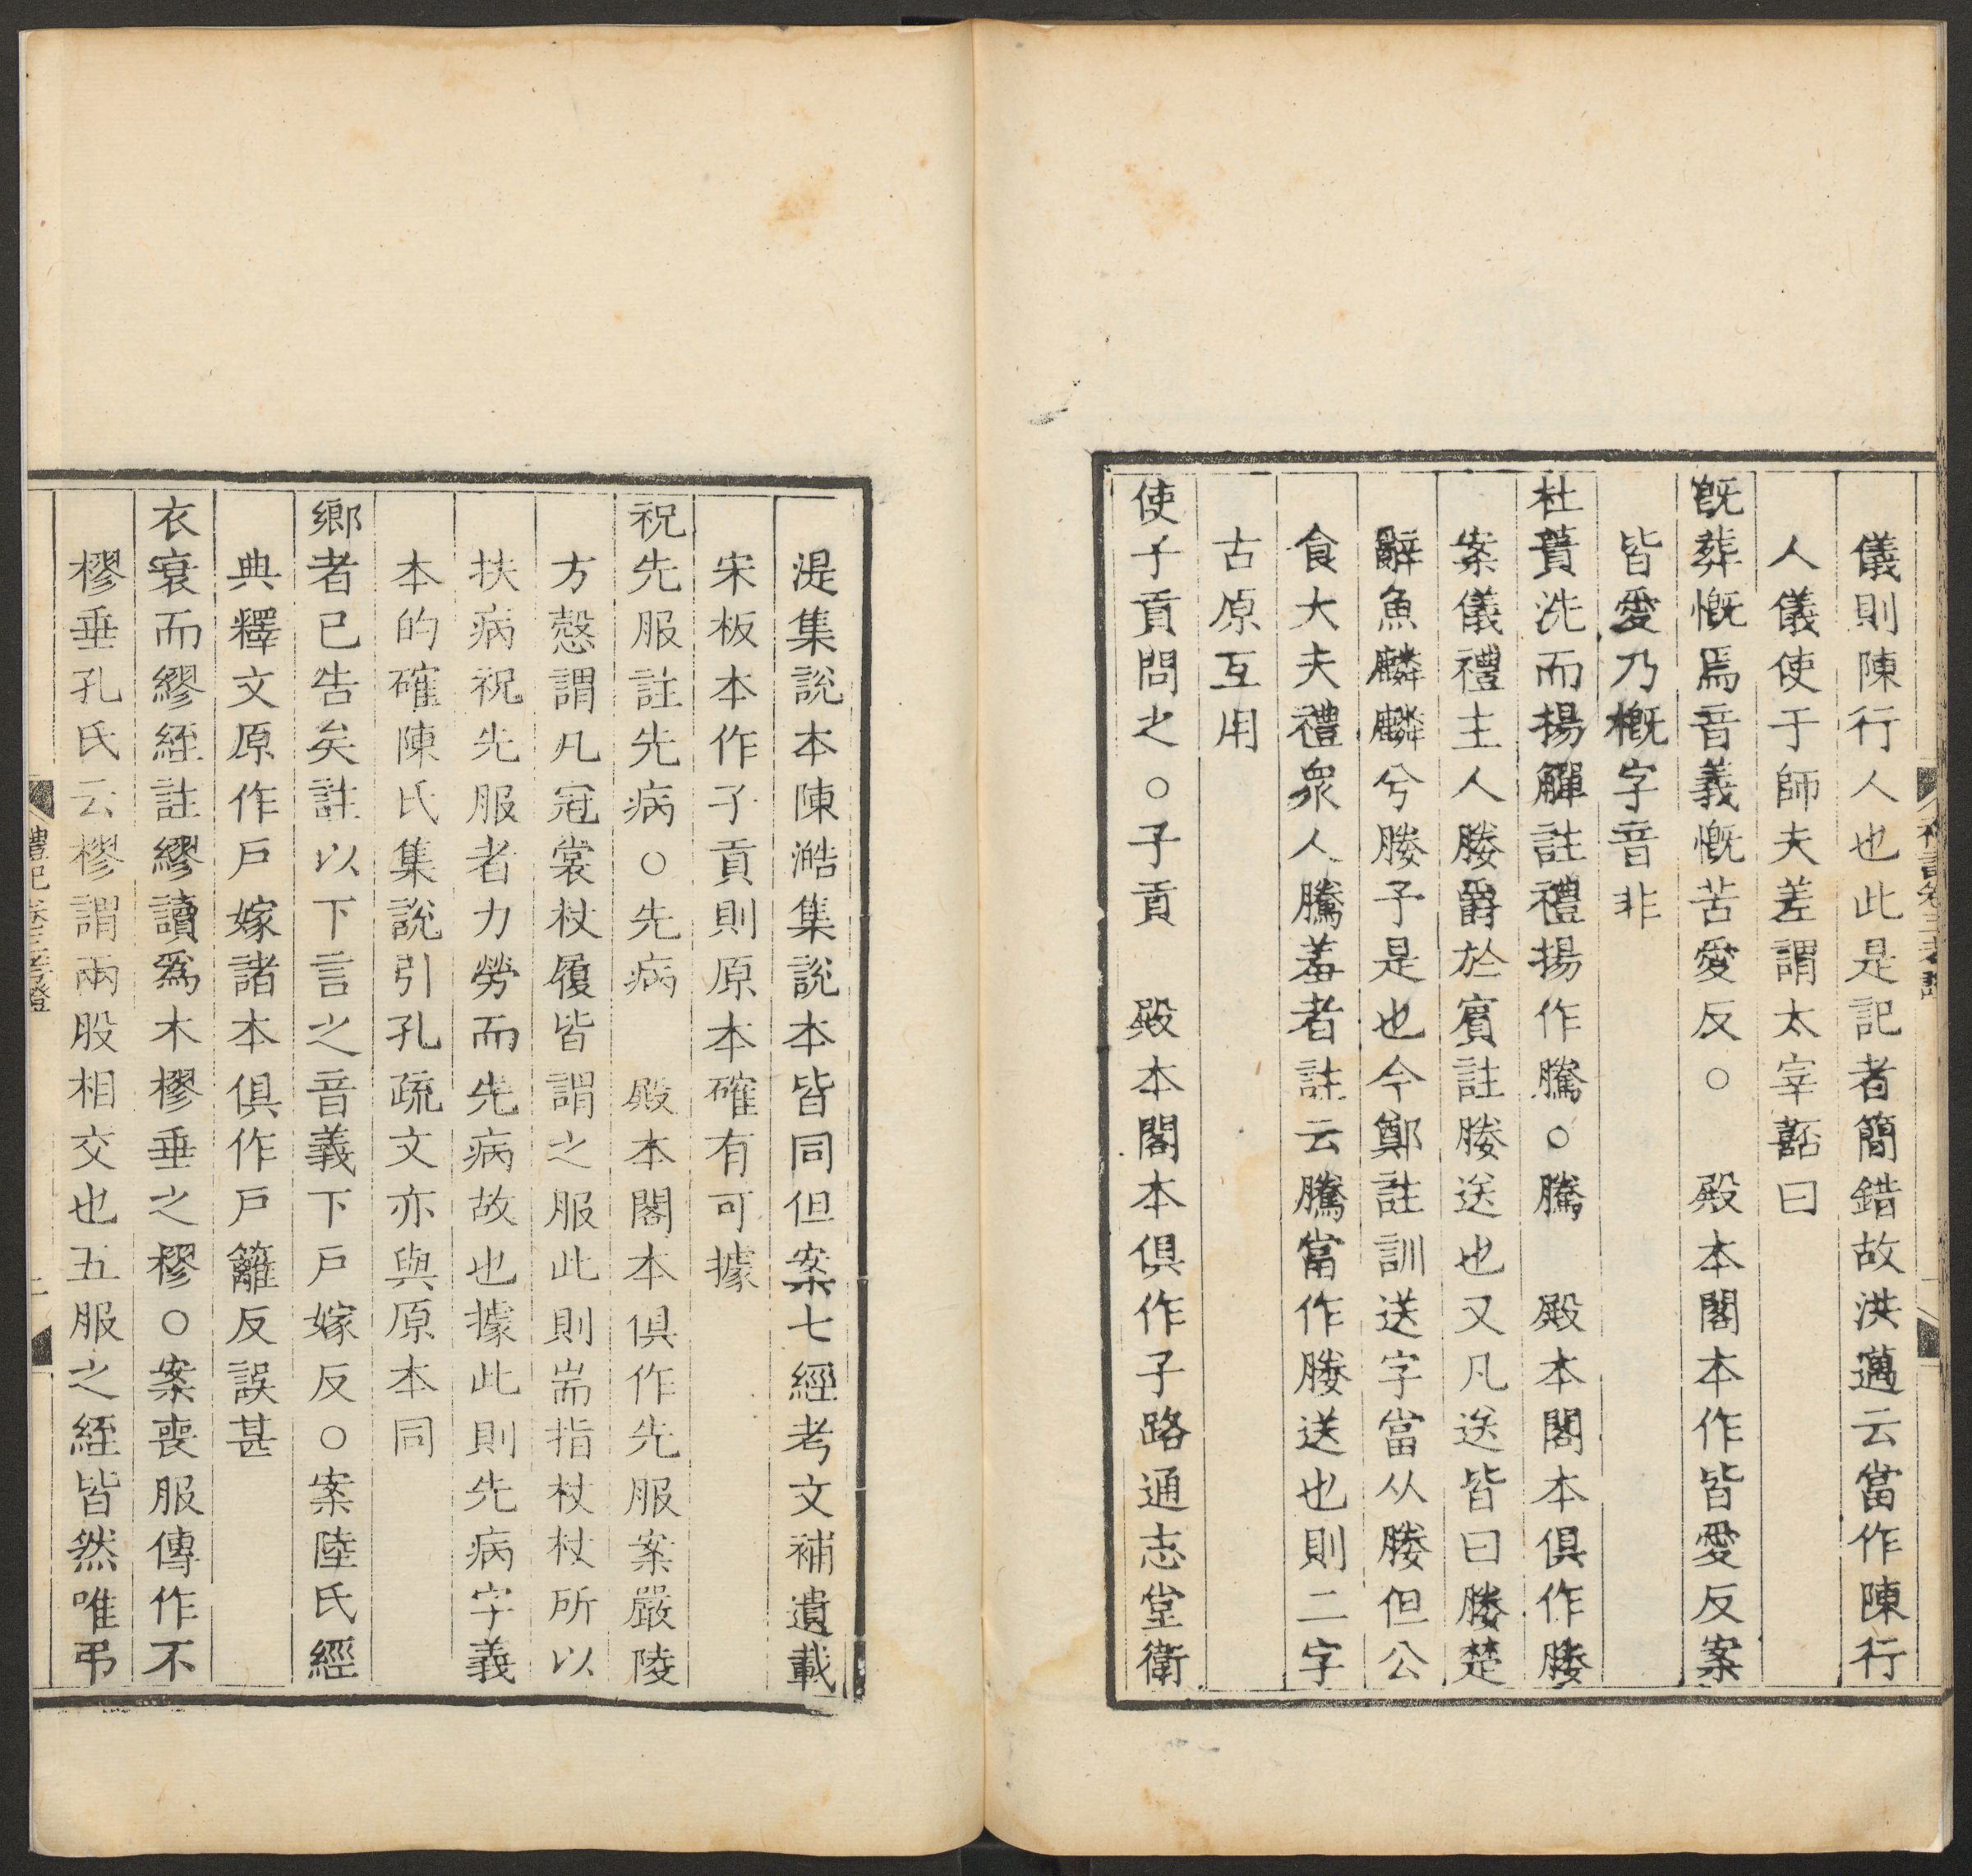 儀則陳行人也此是記者簡錯故洪邁云當作陳行
人儀使于師夫差謂太宰嚭曰
既葬慨焉音義慨苦愛反○　殿本閣本作皆愛反案
皆愛乃概字音非
杜蕢洗而揚觶註禮揚作騰○騰　殿本閣本俱作媵
案儀禮主人媵爵於賓註媵送也又凡送皆曰媵楚
辭魚麟麟兮媵予是也今鄭註訓送字當从媵但公
食大夫禮衆人騰羞者註云騰當作媵送也則二字
古原互用
使子貢問之○子貢　殿本閣本俱作子路通志堂衛
湜集說本陳澔集說本皆同但案七經考文補遺載
宋板本作子貢則原本確有可據
祝先服註先病○先病　殿本閣本俱作先服案嚴陵
方慤謂凡冠裳杖履皆謂之服此則耑指杖杖所以
扶病祝先服者力勞而先病故也據此則先病字義
本的確陳氏集說引孔疏文亦與原本同
鄉者已告矣註以下言之音義下戶嫁反○案陸氏經
典釋文原作戶嫁諸本俱作戶籬反誤甚
衣衰而繆絰註繆讀爲木樛垂之樛○案喪服傳作不
樛垂孔氏云樛謂兩股相交也五服之絰皆然唯弔
禮記卷三考證